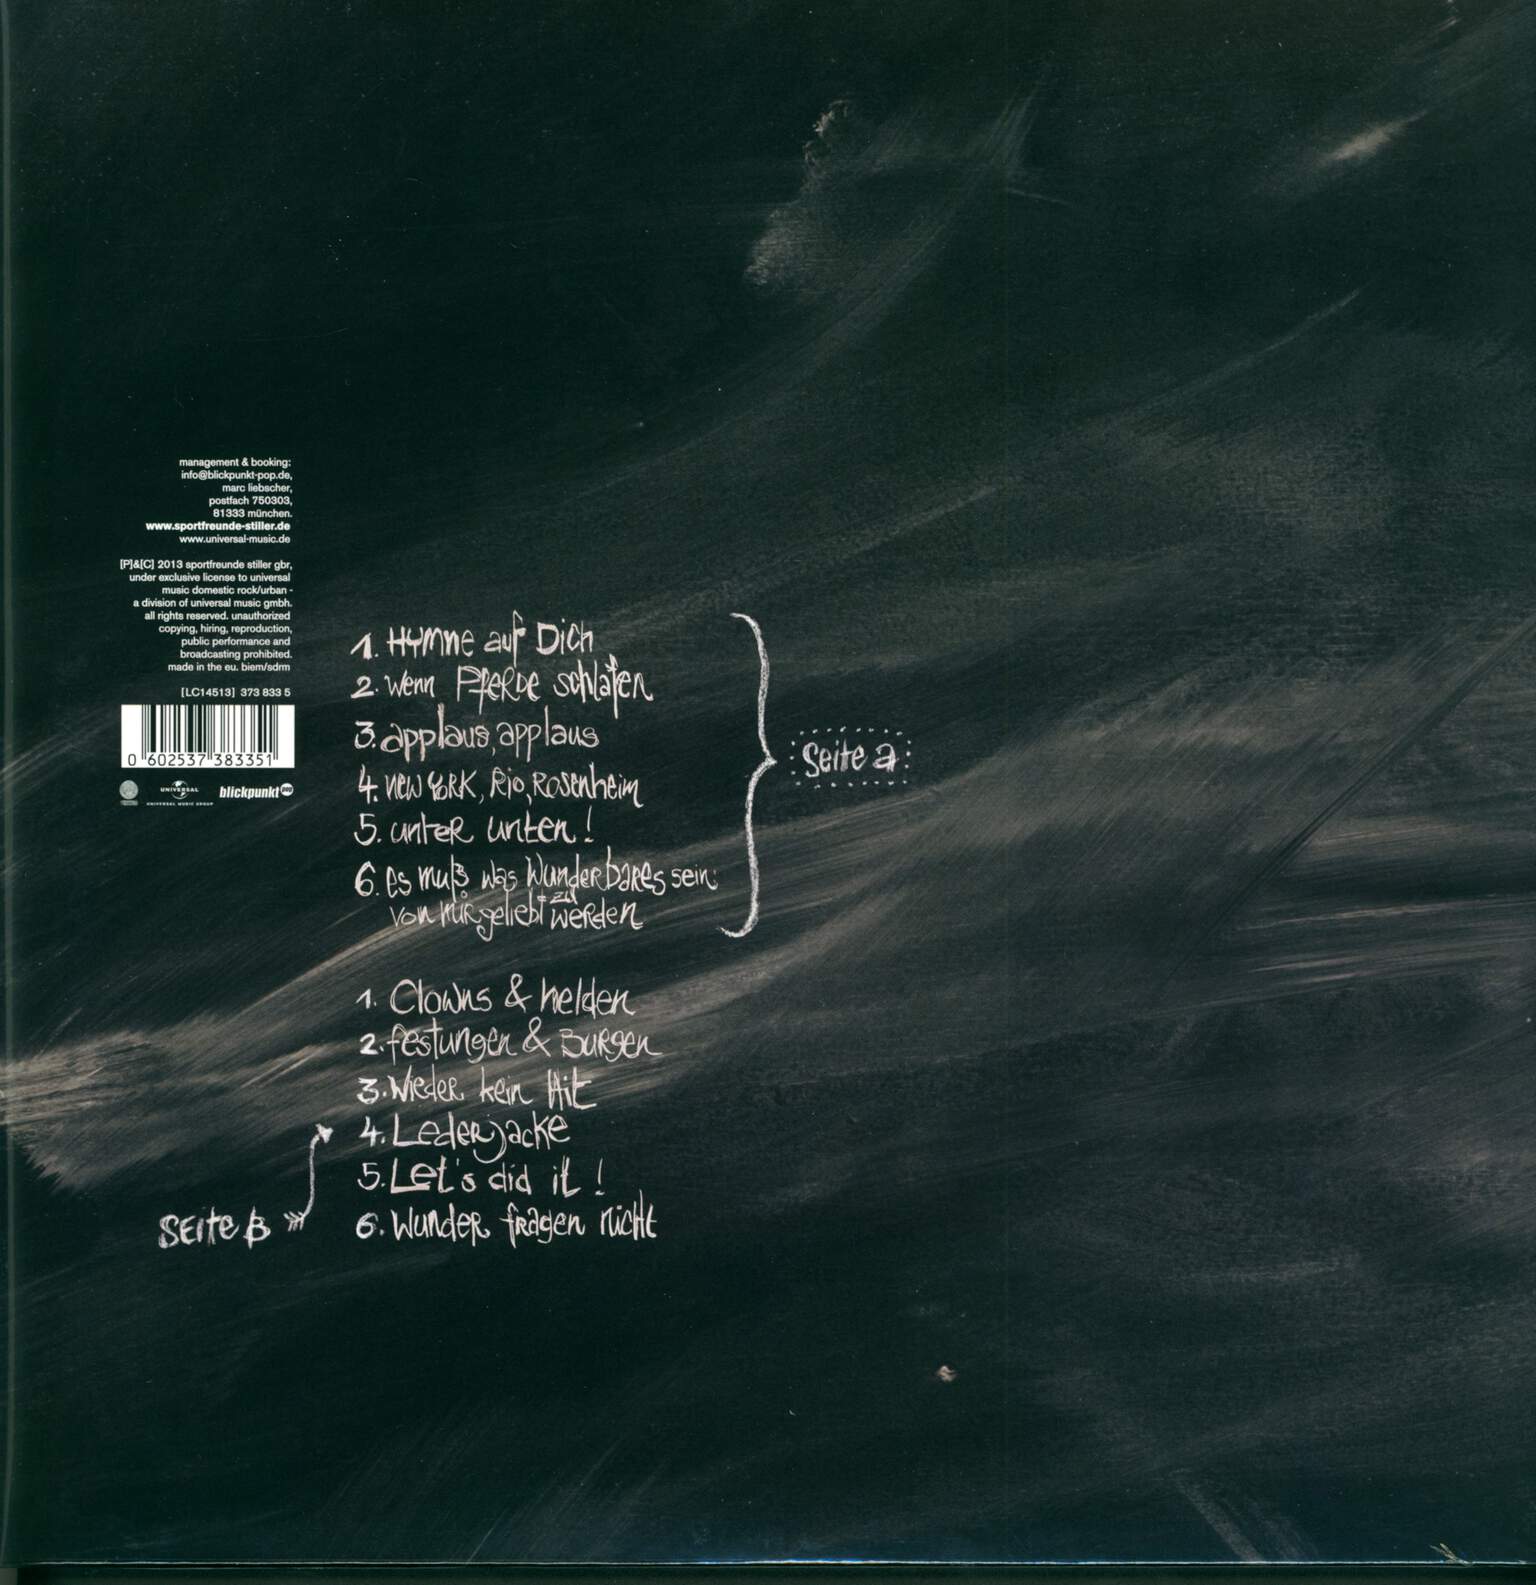 management & booking:
info@blickpunkt-pop.de,
marc liebscher,
postfach 750303,
81333 münchen.
www.sportfreunde-stiller.de
www.universal-music.de
[P]&[C] 2013 sportfreunde stiller gbr,
under exclusive license to universal
music domestic rock/urban -
a division of universal music gmbh.
all rights reserved. unauthorized
copying, hiring, reproduction,
public performance and
broadcasting prohibited.
made in the eu. biem/sdrm
[LC14513] 373 833 5
0 602537 383351
UNIVERSAL
UNIVERSAL MUSIC GROUP
blickpunkt pop
1. Hymne auf Dich
2. Wenn Pferde schlafen
3. applaus, applaus
4. New York, Rio, Rosenheim
5. unter unten!
6. es muß was Wunderbares sein:
von mir geliebt zu werden
Seite a
1. Clowns & helden
2. festungen & Burgen
3. Wieder kein Hit
4. Lederjacke
5. Let's did it!
6. Wunder fragen nicht
Seite B